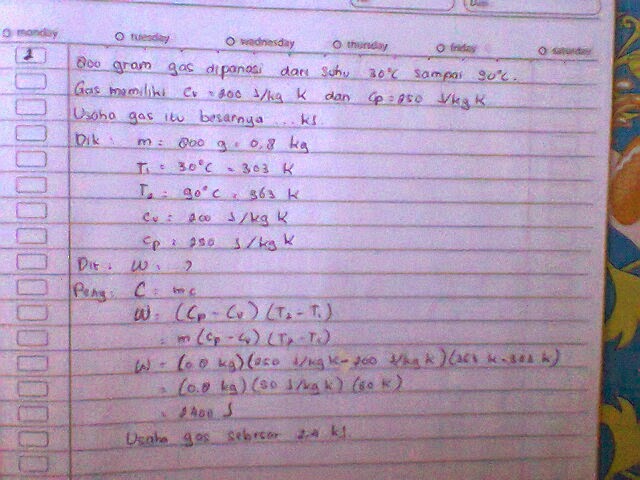 monday tuesday wednesday thursday friday saturday
2 800 gram gas dipanasi dari suhu 30°C sampai 90°C.
Gas memiliki Cv = 200 J/kg K dan Cp = 250 J/kg K
Usaha gas itu besarnya ... kJ
Dik : m = 800 g = 0,8 kg
T1 = 30°C = 303 K
T2 = 90°C = 363 K
Cv = 200 J/kg K
Cp = 250 J/kg K
Dit : W = ?
Peny : C = mc
W = (Cp - Cv) (T2 - T1)
= m (Cp - Cv) (T2 - T1)
W = (0.8 kg) (250 J/kg K - 200 J/kg K) (363 K - 303 K)
= (0.8 kg) (50 J/kg K) (60 K)
= 2400 J
Usaha gas sebesar 2.4 kJ